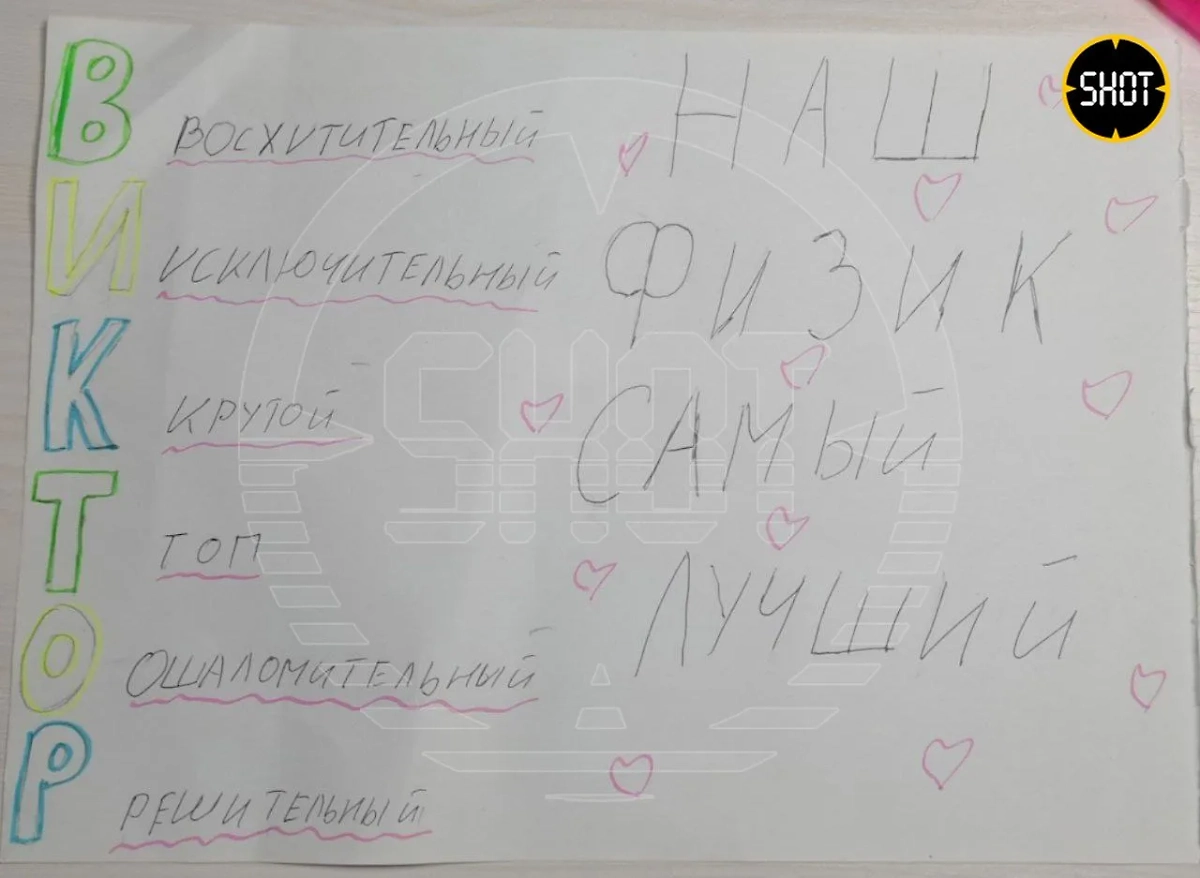 В
И
К
Т
О
Р
ВОСХИТИТЕЛЬНЫЙ
ИСКЛЮЧИТЕЛЬНЫЙ
КРУТОЙ
ТОП
ОШАЛОМИТЕЛЬНЫЙ
РЕШИТЕЛЬНЫЙ
НАШ
ФИЗИК
САМЫЙ
ЛУЧШИЙ
SHOT
SHOT